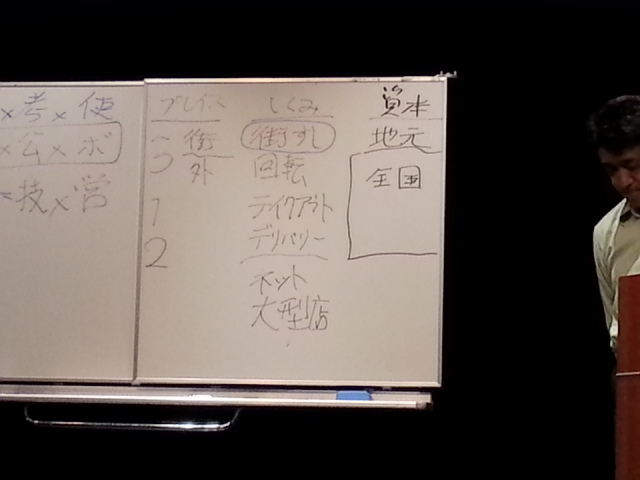 ×考×使
×公×ボ
=技×営
プレイス しくみ 資本
街 街すし 地元
外 回転 全国
1 テイクアウト
2 デリバリー
ネット
大型店